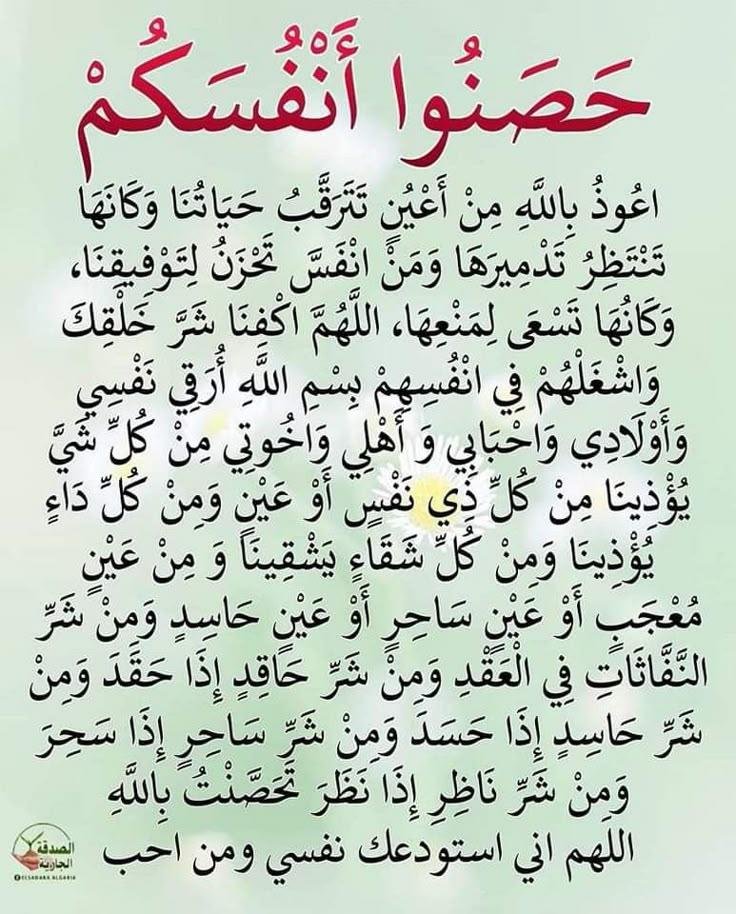 حَصَنُوا أَنْفُسَكُمْ
اعُوذُ بِاللَّهِ مِنْ أَعْيُنٍ تَتَرَقَّبُ حَيَاتُنَا وَكَانَهَا
تَنْتَظِرُ تَدْمِيرَهَا وَمَنْ انْفَسَّ تَحْزَنُ لِتَوْفِيقِنَا،
وَكَانُهَا تَسْعَى لِمَنْعِهَا، اللَّهُمَّ اكْفِنَا شَرَّ خَلْقِكَ
وَاشْغَلْهُمْ فِي انْفُسِهِمْ بِسْمِ اللَّهِ أُرَقِي نَفْسِي
وَأَوْلَادِي وَاحْبَابِي وَ أَهْلِي وَاخُوتِي مِنْ كُلِّ شَيَّ
يُؤْذِينَا مِنْ كُلِّ ذِي نَفْسٍ أَوْ عَيْنٍ وَمِنْ كُلِّ دَاءٍ
يُؤْذِينَا وَمِنْ كُلِّ شَقَاءٍ يَشْقِينَا وَ مِنْ عَيْنٍ
مُعْجَبٍ أَوْ عَيْنٍ سَاحِرٍ أَوْ عَيْنٍ حَاسِدٍ وَمِنْ شَرِّ
النَّفَّاثَاتِ فِي الْعَقْدِ وَمِنْ شَرِّ حَاقِدٍ إِذَا حَقَدَ وَمِنْ
شَرِّ حَاسِدٍ إِذَا حَسَدَ وَمِنْ شَرِّ سَاحِرٍ إِذَا سَحِرَ
وَمِنْ شَرِّ نَاظِرٍ إِذَا نَظَرَ تَحَصَّنْتُ بِاللَّهِ
اللهم اني استودعك نفسي ومن احب
الصدقة
الجارية
ELSADAKA ALGARIA